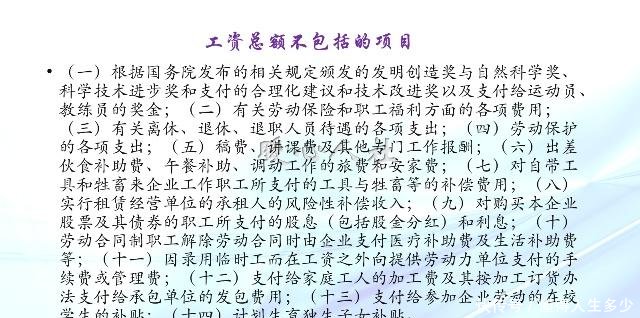 工资总额不包括的项目
• （一）根据国务院发布的相关规定颁发的发明创造奖与自然科学奖、
科学技术进步奖和支付的合理化建议和技术改进奖以及支付给运动员、
教练员的奖金；（二）有关劳动保险和职工福利方面的各项费用；
（三）有关离休、退休、退职人员待遇的各项支出；（四）劳动保护
的各项支出；（五）稿费、讲课费及其他专门工作报酬；（六）出差
伙食补助费、午餐补助、调动工作的旅费和安家费；（七）对自带工
具和牲畜来企业工作职工所支付的工具与牲畜等的补偿费用；（八）
实行租赁经营单位的承租人的风险性补偿收入；（九）对购买本企业
股票及其债券的职工所支付的股息（包括股金分红）和利息；（十）
劳动合同制职工解除劳动合同时由企业支付医疗补助费及生活补助费
等；（十一）因录用临时工而在工资之外向提供劳动力单位支付的手
续费或管理费；（十二）支付给家庭工人的加工费及其按加工订货办
法支付给承包单位的发包费用；（十三）支付给参加企业劳动的在校
学生的补贴；（十四）计划生育独生子女补贴。